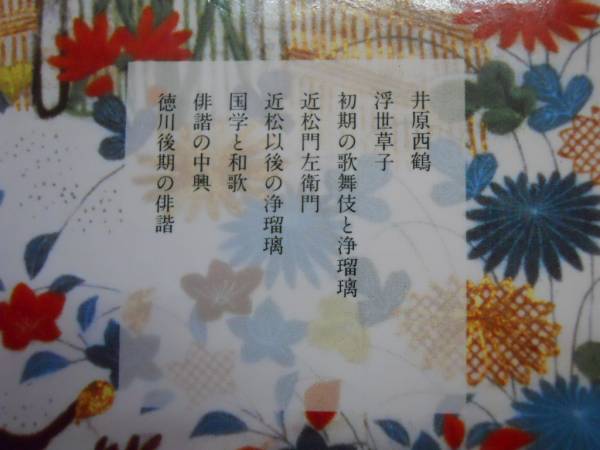 井原西鶴
浮世草子
初期の歌舞伎と浄瑠璃
近松門左衛門
近松以後の浄瑠璃
国学と和歌
俳諧の中興
徳川後期の俳諧